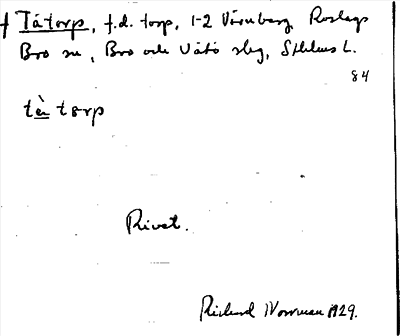 † Tåtorp, f.d. torp, 1-2 Vårnberg Roslags
Bro sn, Bro och Vätö slg, Sthlms l.
84
tὰ torp
Rivet.
Richard Norrman 1929.